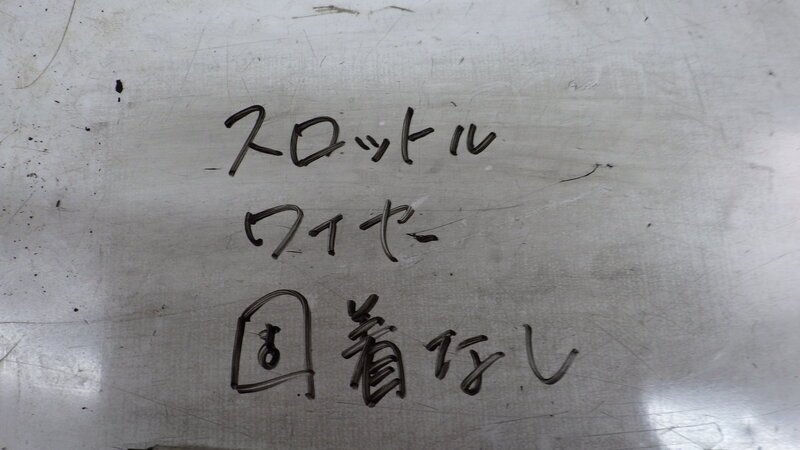 スロットル
ワイヤー
固着なし